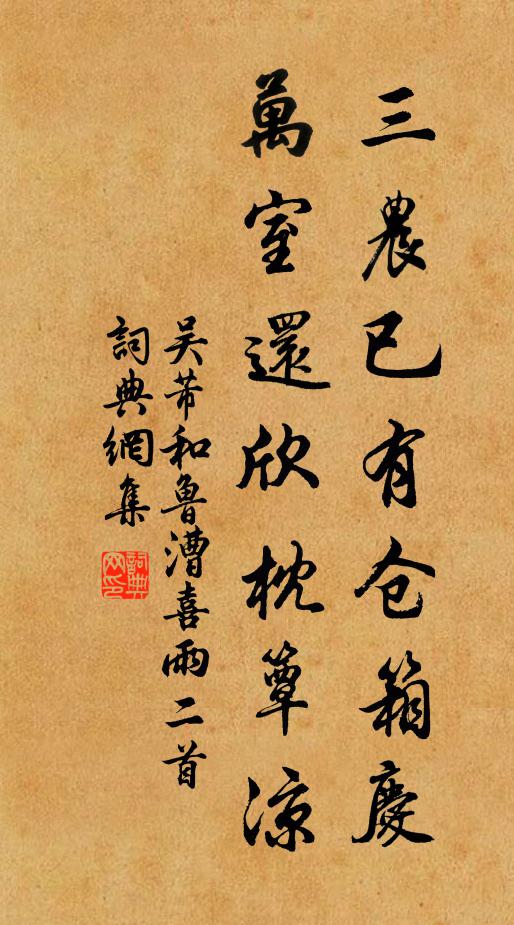 三農已有仓箱慶
萬室還欣枕簟凉
吴芾和魯漕喜雨二首
詞典網集
詞典網印